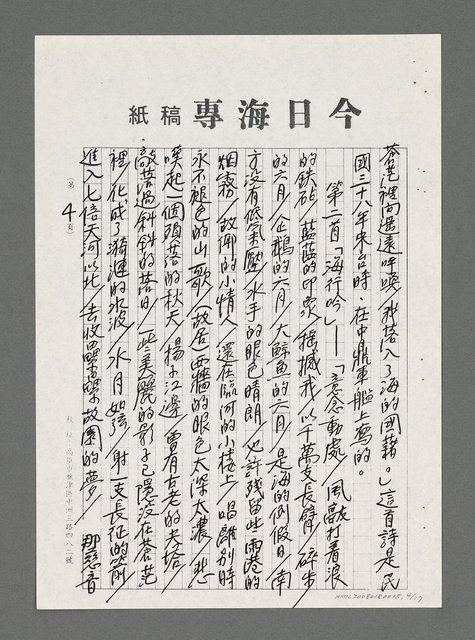 今日海專 稿紙
蒼茫裡向遙遠呼喚／我落入了海的國籍。」這首詩是民
國三十八年來台時，在中鼎軍艦上寫的。
第二首「海行吟」——「意念動處／風敲打着浪
的鉄砧／藍藍的印象／搖撼我／以千萬支長臂／碎步
的六月／企鵝的六月／大鯨魚的六月／是海的例假日／南
方沒有低氣壓／水手的眼色晴朗／也許殘留些雨港的
烟霧／故鄉的小情人／還在臨河的小樓上／唱離別時
永不褪色的山歌／故居西牆的眼色太深太濃／悲
嘆起一個頭昏的秋天／揚子江邊／曾有古老的夫塔／
敲落過斜斜的落日／這些美麗的影子已隱沒在蒼茫
裡／化成了漪漣的水波／氷月如弦／射一支長征的箭／
進入七倍天河以北／去收羅疊疊故園的夢／那慈音
(第4頁)
校址：高雄市旗津區中洲三路四八二號
NMTL20080180015, 4/17